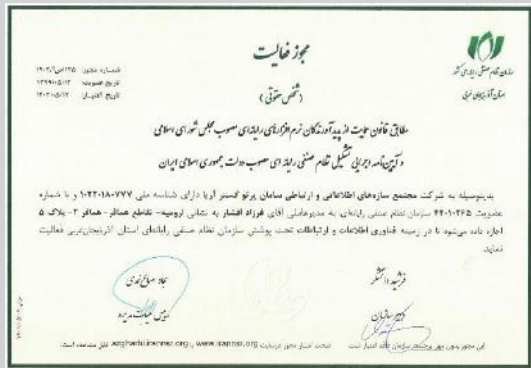 سازمان نظام صنفی رایانه‌ای کشور
استان آذربایجان غربی
مجوز فعالیت
(شخص حقوقی)
شماره مجوز:
تاریخ عضویت: ۱۳۹۹/۰۵/۱۲
تاریخ اعتبار: ۱۴۰۳/۰۵/۱۲
مطابق قانون حمایت از پدیدآورندگان نرم افزارهای رایانه‌ای مصوب مجلس شورای اسلامی
و آیین‌نامه اجرایی تشکیل نظام صنفی رایانه ای مصوب دولت جمهوری اسلامی ایران
بدینوسیله به شرکت مجتمع سازه‌های اطلاعاتی و ارتباطی سامان پرتو گستر آریا دارای شناسه ملی ۱۰۲۲۰۱۸۰۷۷۷ و با شماره
عضویت ۴۴۰۱۰۲۶۵ سازمان نظام صنفی رایانه‌ای به مدیرعاملی آقای فرزاد افشار به نشانی ارومیه- تقاطع همافر- همافر ۲- پلاک ۵
اجازه داده می‌شود تا در زمینه فناوری اطلاعات و ارتباطات تحت پوشش سازمان نظام صنفی رایانه‌ای استان آذربایجان‌غربی فعالیت
نماید.
فرشید دانشگر
دبیر سازمان
رییس هیات مدیره
این مجوز بدون مهر برجسته سازمان فاقد اعتبار است
صحت اعتبار مجوز درسایت www.irannsr.org و azgharbi.irannsr.org قابل مشاهده است.